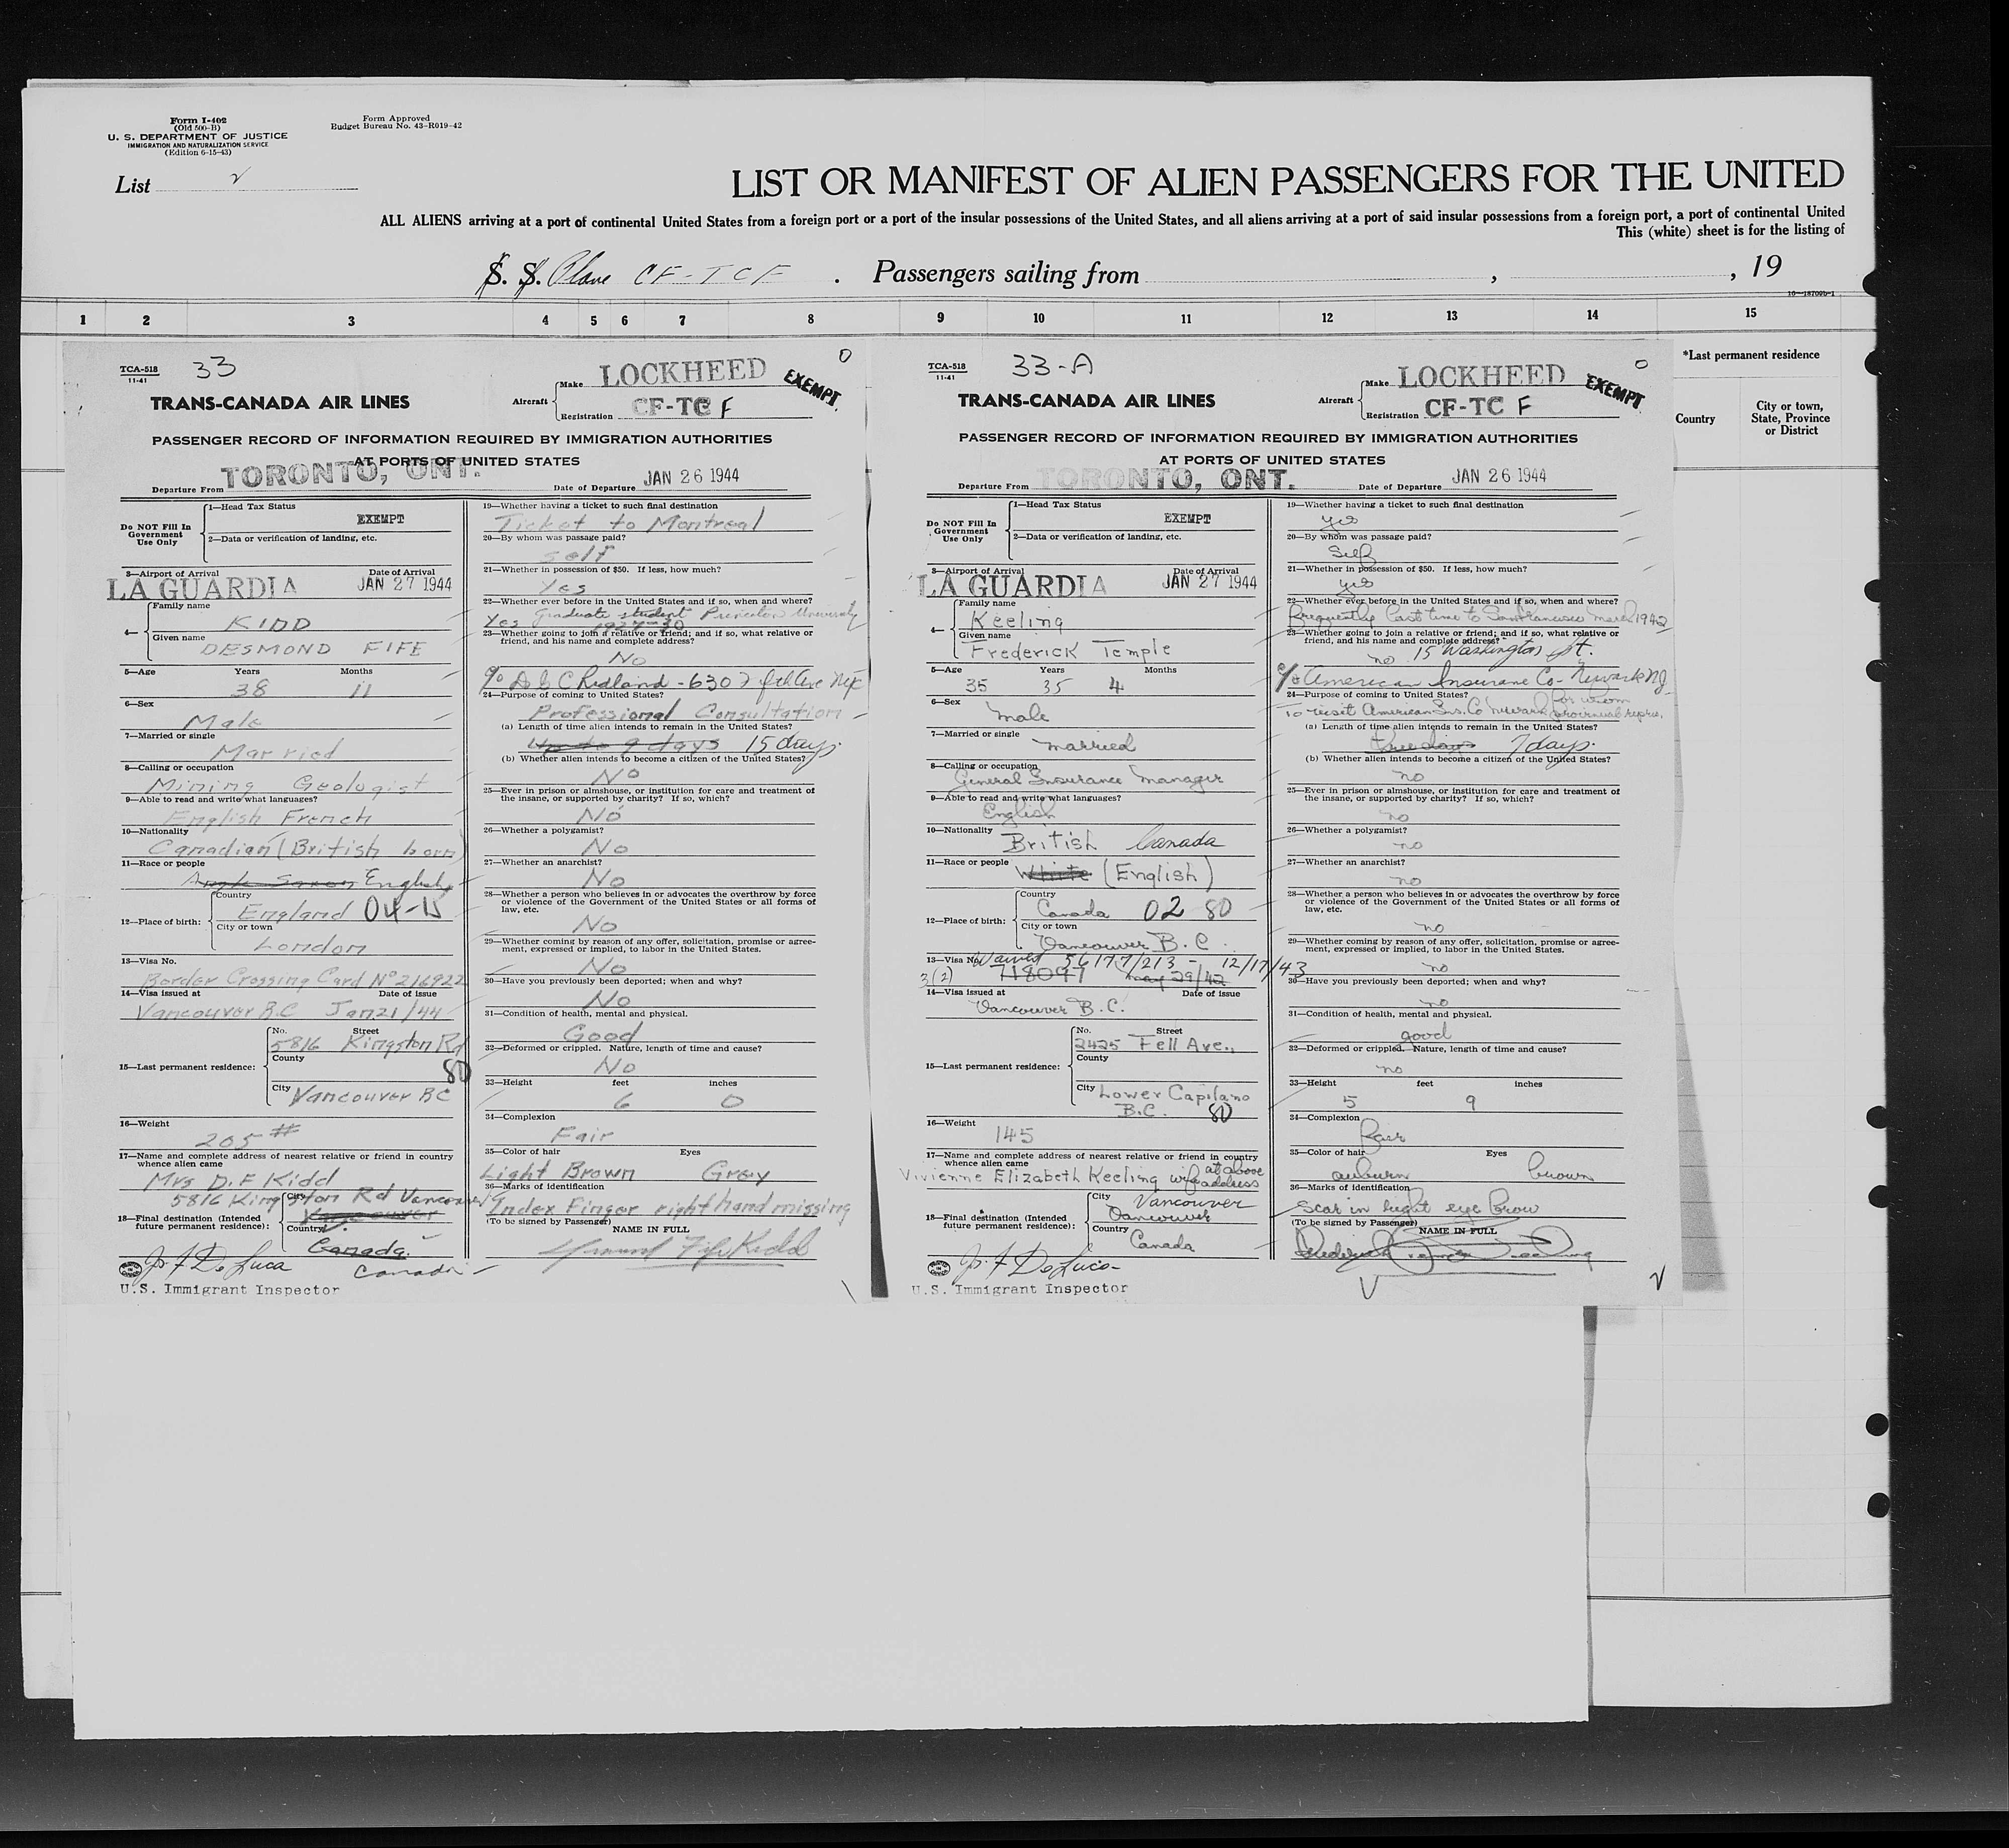 Form I-402
(Old 500-B)
U. S. DEPARTMENT OF JUSTICE
IMMIGRATION AND NATURALIZATION SERVICE
(Edition 6-15-43)
Form Approved
Budget Bureau No. 43-R019-42
List
LIST OR MANIFEST OF ALIEN PASSENGERS FOR THE UNITED
ALL ALIENS arriving at a port of continental United States from a foreign port or a port of the insular possessions of the United States, and all aliens arriving at a port of said insular possessions from a foreign port, a port of continental United
This (white) sheet is for the listing of
S. S. Plane CF-TCF. Passengers sailing from , , 19
16-18709b-1
1 2 3 4 5 6 7 8 9 10 11 12 13 14 15
*Last permanent residence
Country
City or town, State, Province or District
TCA-518
11-41
33
0
Aircraft
Make LOCKHEED
Registration CF-TC F
EXEMPT
TRANS-CANADA AIR LINES
PASSENGER RECORD OF INFORMATION REQUIRED BY IMMIGRATION AUTHORITIES
AT PORTS OF UNITED STATES
Departure From TORONTO, ONT.
Date of Departure JAN 26 1944
Do NOT Fill In Government Use Only
1—Head Tax Status
EXEMPT
2—Data or verification of landing, etc.
3—Airport of Arrival
Date of Arrival
LA GUARDIA JAN 27 1944
4—
Family name
KIDD
Given name
DESMOND FIFE
5—Age Years Months
38 11
6—Sex
Male
7—Married or single
Married
8—Calling or occupation
Mining Geologist
9—Able to read and write what languages?
English French
10—Nationality
Canadian (British born)
11—Race or people
Anglo Saxon English
12—Place of birth:
Country
England 04-15
City or town
London
13—Visa No.
Border Crossing Card No 216922
14—Visa issued at Date of issue
Vancouver B.C Jan 21/44
15—Last permanent residence:
No. Street
5816 Kingston Rd
County
80
City Vancouver BC
16—Weight
205 #
17—Name and complete address of nearest relative or friend in country whence alien came
Mrs D.F Kidd
5816 Kingston Rd Vancouver
18—Final destination (Intended future permanent residence):
City
Vancouver
Country
Canada
Canada
J. F. De Luca
U.S. Immigrant Inspector
19—Whether having a ticket to such final destination
Ticket to Montreal
20—By whom was passage paid?
self
21—Whether in possession of $50. If less, how much?
Yes
22—Whether ever before in the United States and if so, when and where?
Yes Graduate student Princeton University
1927-30
23—Whether going to join a relative or friend; and if so, what relative or friend, and his name and complete address?
No
24—Purpose of coming to United States?
Professional Consultation
(a) Length of time alien intends to remain in the United States?
Up to 9 days 15 days.
(b) Whether alien intends to become a citizen of the United States?
No
25—Ever in prison or almshouse, or institution for care and treatment of the insane, or supported by charity? If so, which?
No
26—Whether a polygamist?
No
27—Whether an anarchist?
No
28—Whether a person who believes in or advocates the overthrow by force or violence of the Government of the United States or all forms of law, etc.
No
29—Whether coming by reason of any offer, solicitation, promise or agreement, expressed or implied, to labor in the United States.
No
30—Have you previously been deported; when and why?
No
31—Condition of health, mental and physical.
Good
32—Deformed or crippled. Nature, length of time and cause?
No
33—Height feet inches
6 0
34—Complexion
Fair
35—Color of hair Eyes
Light Brown Gray
36—Marks of identification
Index Finger right hand missing
(To be signed by Passenger) NAME IN FULL
Desmond Fife Kidd
TCA-518
11-41
33-A
0
Aircraft
Make LOCKHEED
Registration CF-TC F
EXEMPT
TRANS-CANADA AIR LINES
PASSENGER RECORD OF INFORMATION REQUIRED BY IMMIGRATION AUTHORITIES
AT PORTS OF UNITED STATES
Departure From TORONTO, ONT.
Date of Departure JAN 26 1944
Do NOT Fill In Government Use Only
1—Head Tax Status
EXEMPT
2—Data or verification of landing, etc.
3—Airport of Arrival
Date of Arrival
LA GUARDIA JAN 27 1944
4—
Family name
Keeling
Given name
Frederick Temple
5—Age Years Months
35 35 4
6—Sex
Male
7—Married or single
married
8—Calling or occupation
General Insurance Manager
9—Able to read and write what languages?
English
10—Nationality
British Canada
11—Race or people
White (English)
12—Place of birth:
Country
Canada 02 80
City or town
Vancouver B.C.
13—Visa No. Waived 56177/213 - 12/17/43
3(2) 718097 May 29/42
14—Visa issued at Date of issue
Vancouver B.C.
15—Last permanent residence:
No. Street
2425 Fell Ave.,
County
City Lower Capilano
B.C. 80
16—Weight
145
17—Name and complete address of nearest relative or friend in country whence alien came
Vivienne Elizabeth Keeling wife at above address
18—Final destination (Intended future permanent residence):
City
Vancouver
Vancouver
Country
Canada
J. F. De Luca
U.S. Immigrant Inspector
19—Whether having a ticket to such final destination
yes
20—By whom was passage paid?
Self
21—Whether in possession of $50. If less, how much?
yes
22—Whether ever before in the United States and if so, when and where?
Frequently Last time to San Francisco March 1942
23—Whether going to join a relative or friend; and if so, what relative or friend, and his name and complete address?
no 15 Washington St.
c/o American Insurance Co- Newark NJ
24—Purpose of coming to United States?
To visit American Ins. Co Newark for whom provincial repres.
(a) Length of time alien intends to remain in the United States?
three days 7 days.
(b) Whether alien intends to become a citizen of the United States?
no
25—Ever in prison or almshouse, or institution for care and treatment of the insane, or supported by charity? If so, which?
no
26—Whether a polygamist?
no
27—Whether an anarchist?
no
28—Whether a person who believes in or advocates the overthrow by force or violence of the Government of the United States or all forms of law, etc.
no
29—Whether coming by reason of any offer, solicitation, promise or agreement, expressed or implied, to labor in the United States.
no
30—Have you previously been deported; when and why?
no
31—Condition of health, mental and physical.
good
32—Deformed or crippled. Nature, length of time and cause?
no
33—Height feet inches
5 9
34—Complexion
Fair
35—Color of hair Eyes
auburn brown
36—Marks of identification
Scar in right eye brow
(To be signed by Passenger) NAME IN FULL
Frederick Temple Keeling